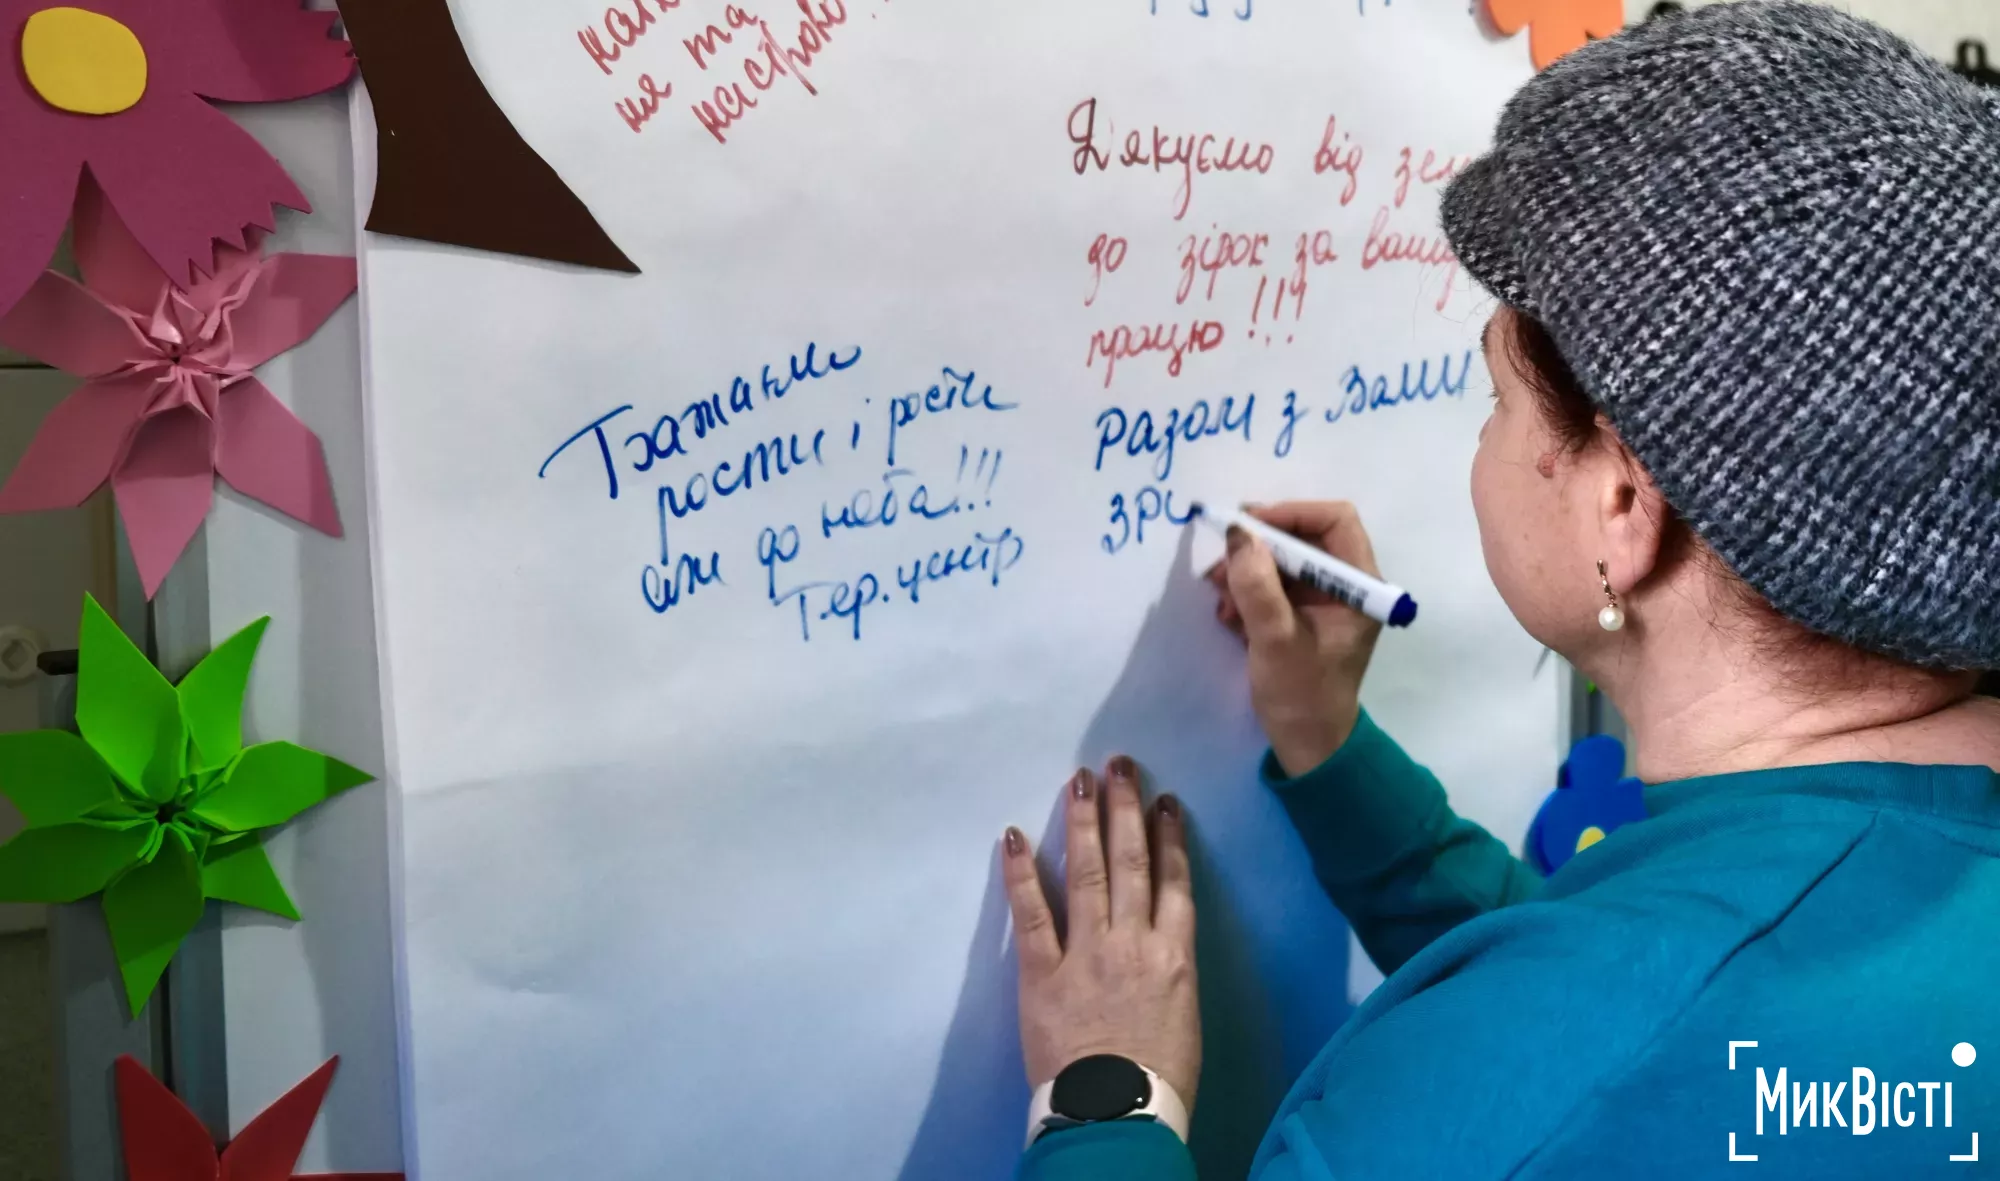 не та
настрою
Дякуємо від зем
до зірок за вашу
працю!!!
Бажаємо
рости і рости
аж до неба!!!
Тер.центр
Разом з Вами
зрі
МикВісті